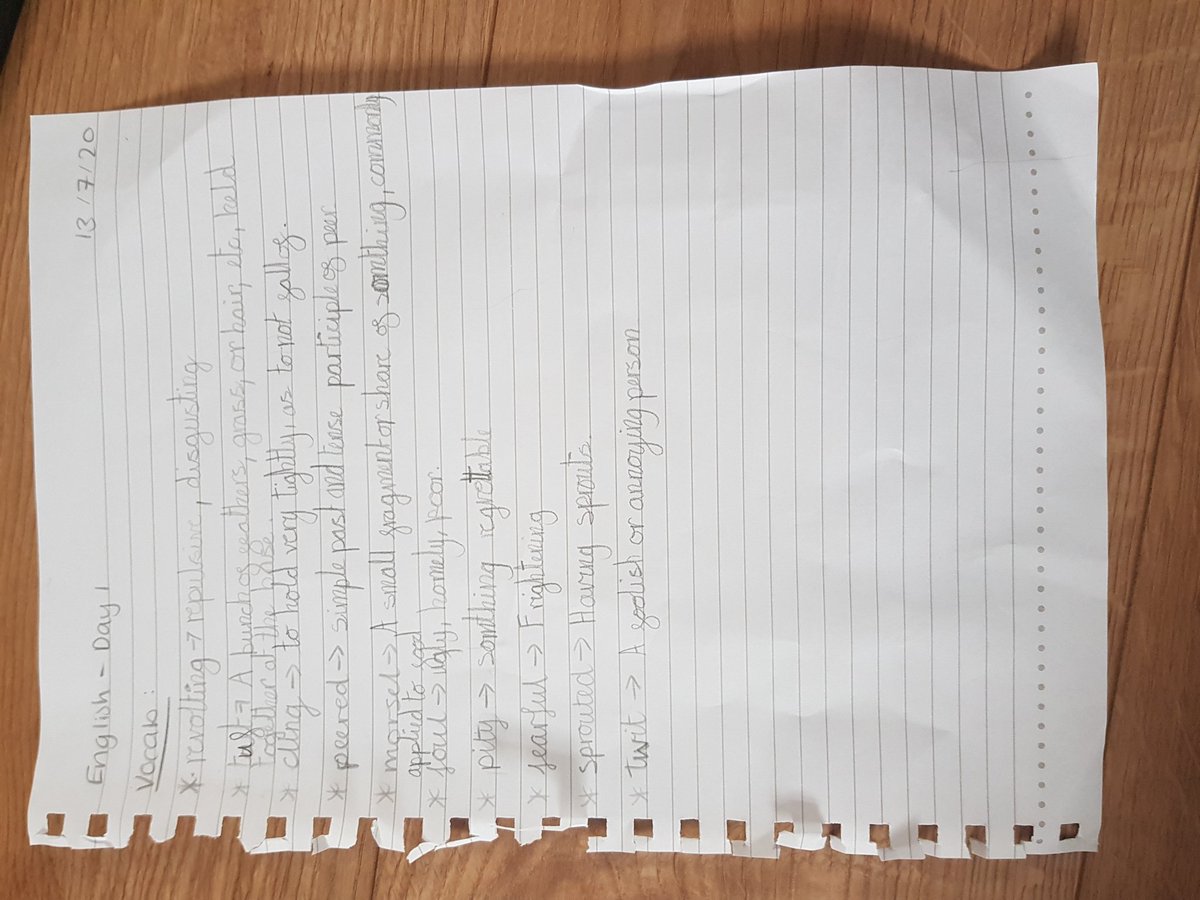 English - Day 1 13/7/20
Vocab:
* revolting → repulsive, disgusting
* tuft → A bunch of feathers, grass, or hair, etc, held
together at the base.
* cling → to hold very tightly, as to not fall off.
* peered → simple past and tense participle of peer
* morsel → A small fragment or share of something, commonly
applied to food
* foul → ugly, homely, poor.
* pity → somthing regrettable
* fearful → Frightening
* sprouted → Having sprouts.
* twit → A foolish or annoying person